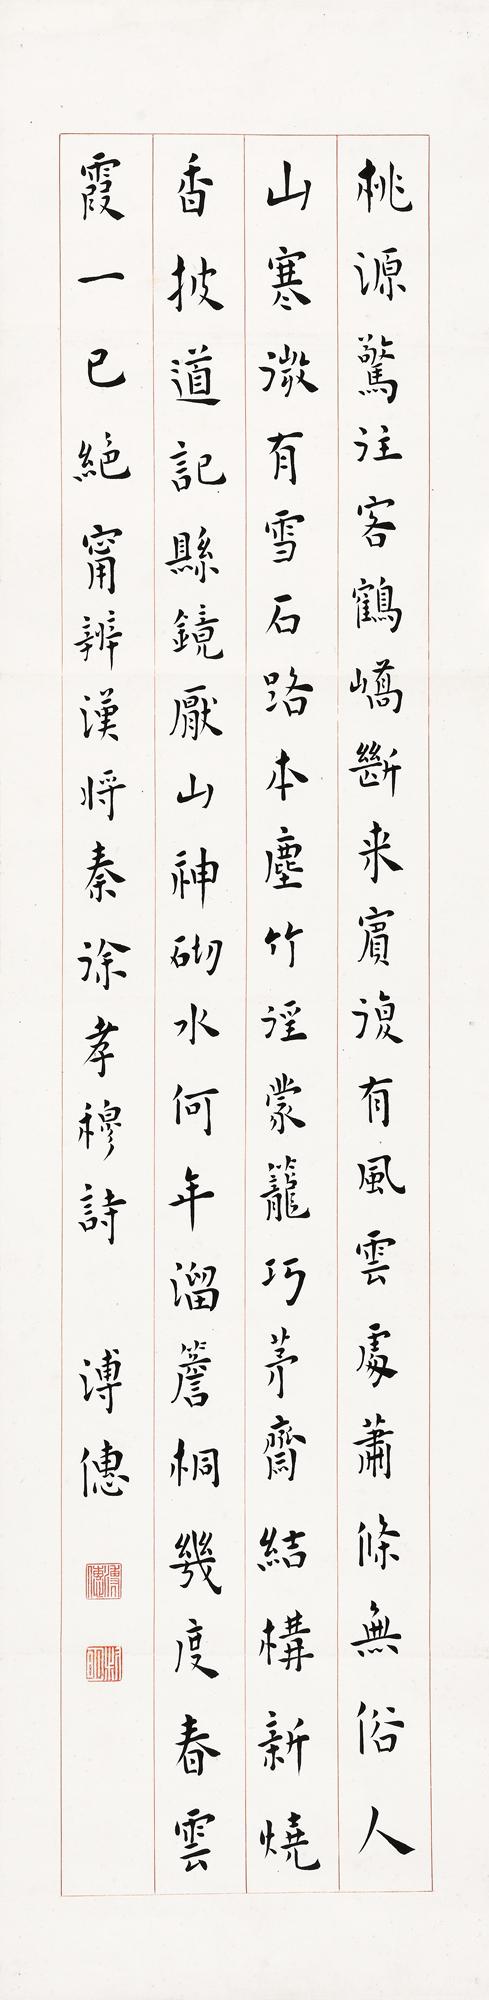 桃源驚往客鶴嶠斷来賓復有風雲處蕭條無俗人
山寒微有雪石路本塵竹逕蒙籠巧茅齋結構新燒
香披道記縣鏡厭山神砌水何年溜簷桐幾度春雲
霞一已絕甯辨漢將秦徐孝穆詩 溥僡
溥僡